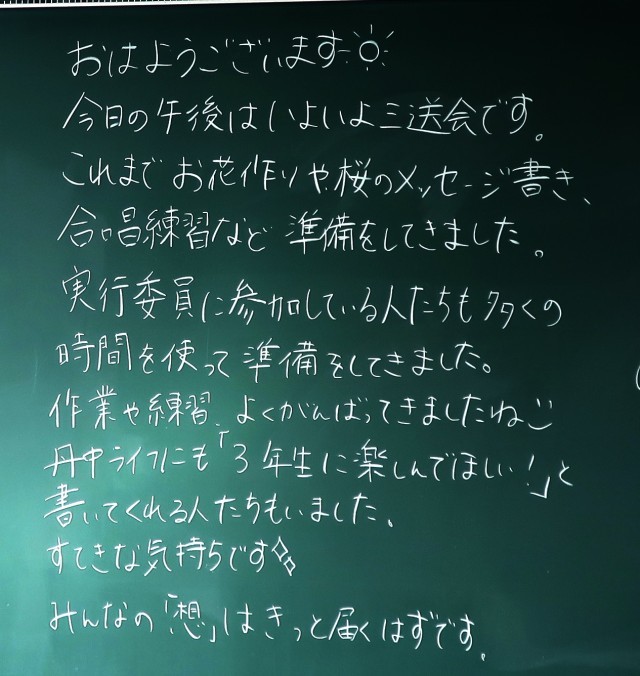 おはようございます☼
今日の午後はいよいよ三送会です。
これまでお花作りや桜のメッセージ書き、
合唱練習など準備をしてきました。
実行委員に参加している人たちも多くの
時間を使って準備をしてきました。
作業や練習、よくがんばってきましたね
丹中ライフにも「3年生に楽しんでほしい!」と
書いてくれる人たちもいました。
すてきな気持ちです
みんなの「想」はきっと届くはずです。